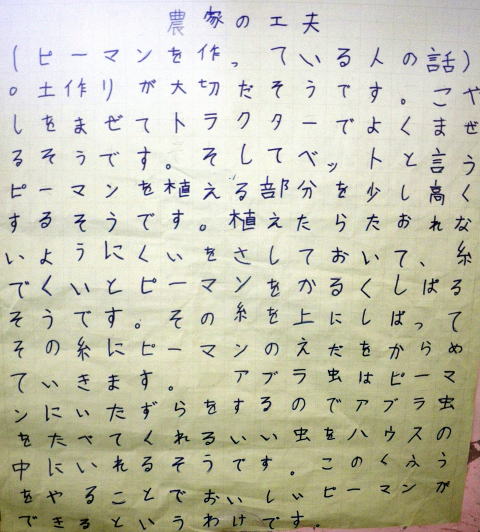 農家の工夫
(ピーマンを作っている人の話)
○土作りが大切だそうです。こや
しをまぜてトラクターでよくまぜ
るそうです。そしてベットと言う
ピーマンを植える部分を少し高く
するそうです。植えたらたおれな
いようにくいをさしておいて、糸
でくいとピーマンをかるくしばる
そうです。その糸を上にしばって
その糸にピーマンのえだをからめ
ていきます。 アブラ虫はピーマ
ンにいたずらをするのでアブラ虫
をたべてくれるいい虫をハウスの
中にいれるそうです。このくふう
をやることでおいしいピーマンが
できるというわけです。